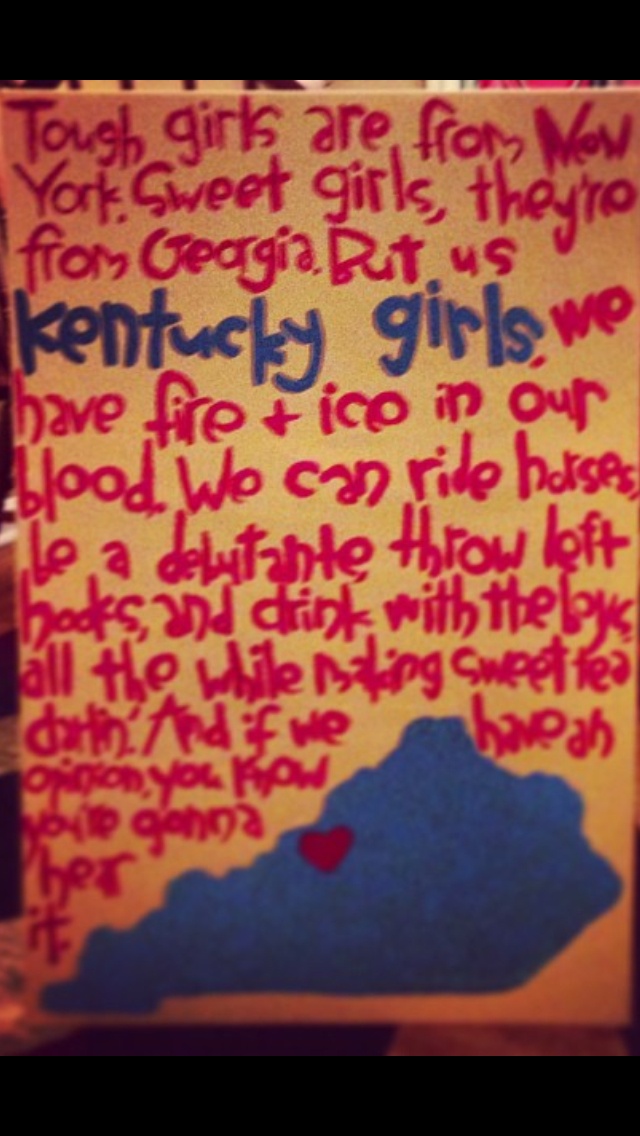 Tough girls are from New
York. Sweet girls, they're
from Georgia. But us
kentucky girls, we
have fire + ice in our
blood. We can ride horses,
be a debutante, throw left
hooks, and drink with the boys,
all the while making sweet tea
darlin'. And if we have an
opinion, you know
you're gonna
hear
it.